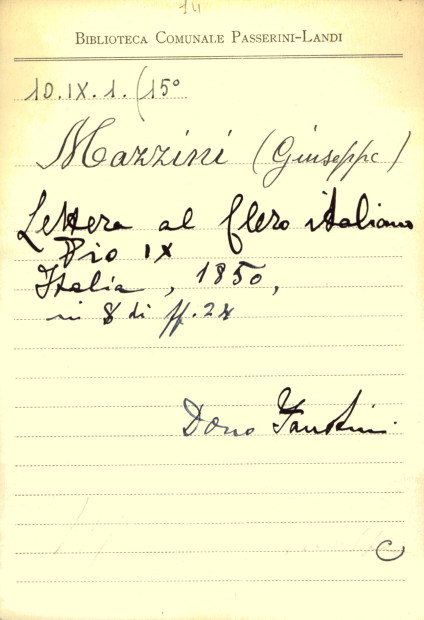 14
BIBLIOTECA COMUNALE PASSERINI-LANDI
10.IX.1.(15°
Mazzini (Giuseppe)
Lettera al Clero italiano
Pio IX
Italia, 1850,
in 8 di ff. 24
Dono Faustini
C